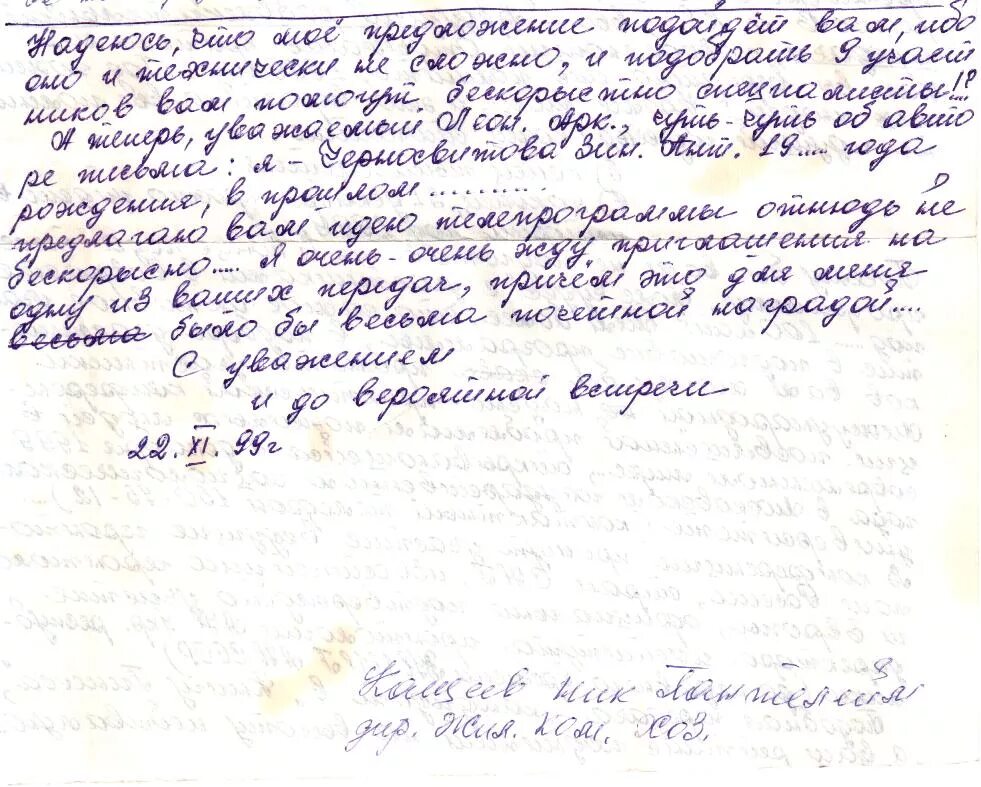 Надеюсь, что моё предложение подойдёт вам, ибо
оно и технически не сложно, и подобрать 9 участ
ников вам помогут бескорыстно специалисты!..?
А теперь, уважаемый Леон. Арк., чуть-чуть об авто
ре письма: я - Черносвитова Зин. Ант. 19.... года
рождения, в прошлом ..........
предлагаю вам идею телепрограммы отнюдь не
бескорысно..... Я очень-очень жду приглашения на
одну из ваших передач, причём это для меня
весьма было бы весьма почётной наградой....
С уважением
и до вероятной встречи
22. XI. 99г
Кащеев Ник
дир. Жил. Ком. Хоз.